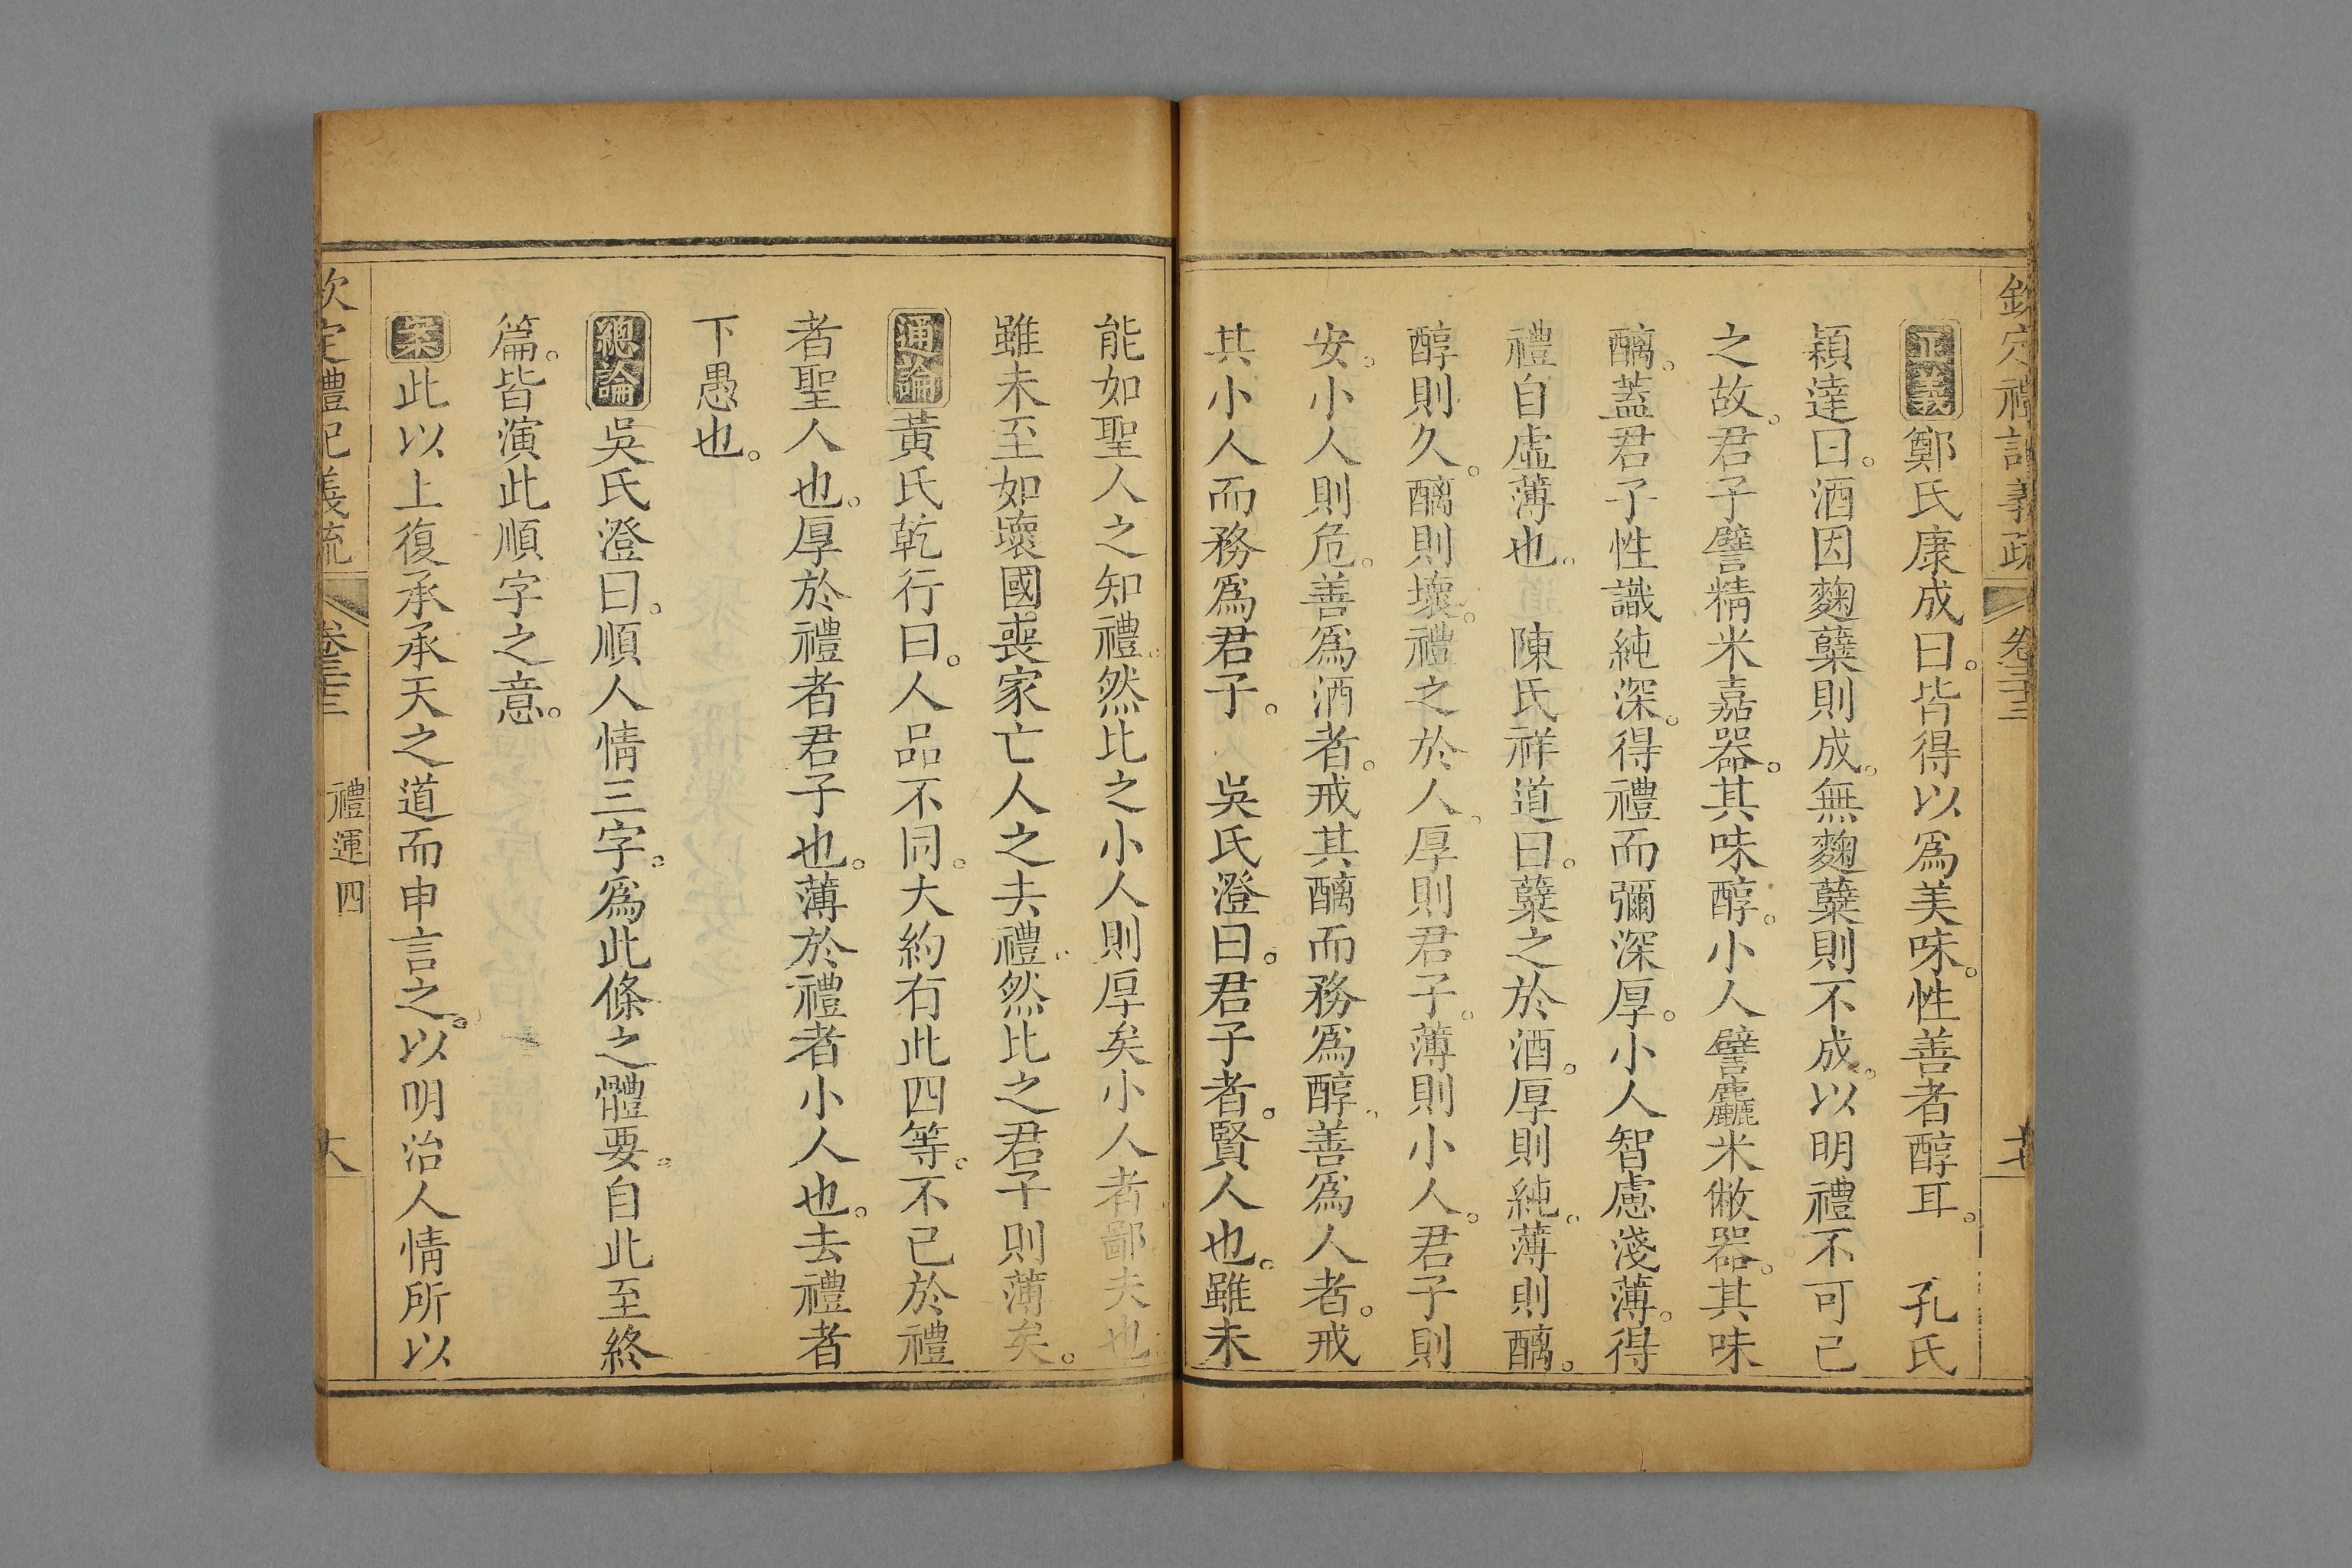 欽定禮記義疏 卷三十三
正義鄭氏康成曰。皆得以爲美味。性善者醇耳。 孔氏
穎達曰。酒因麴糵則成。無麴糵則不成。以明禮不可已
之故。君子譬精米嘉器。其味醇。小人譬麤米敝器。其味
醨。蓋君子性識純深。得禮而彌深厚。小人智慮淺薄。得
禮自虛薄也。 陳氏祥道曰。糵之於酒。厚則純。薄則醨。
醇則久。醨則壞。禮之於人。厚則君子。薄則小人。君子則
安。小人則危。善爲酒者。戒其醨而務爲醇。善爲人者。戒
其小人而務爲君子。 吳氏澄曰。君子者。賢人也。雖未
能如聖人之知禮。然比之小人則厚矣小人者鄙夫也
雖未至如壞國喪家亡人之去禮。然比之君子則薄矣。
通論黃氏乾行曰。人品不同。大約有此四等。不已於禮
者聖人也。厚於禮者君子也。薄於禮者小人也。去禮者
下愚也。
總論吳氏澄曰。順人情三字。爲此條之體要。自此至終
篇。皆演此順字之意。
案此以上復承承天之道而申言之。以明治人情所以
欽定禮記義疏 卷三十三 禮運四